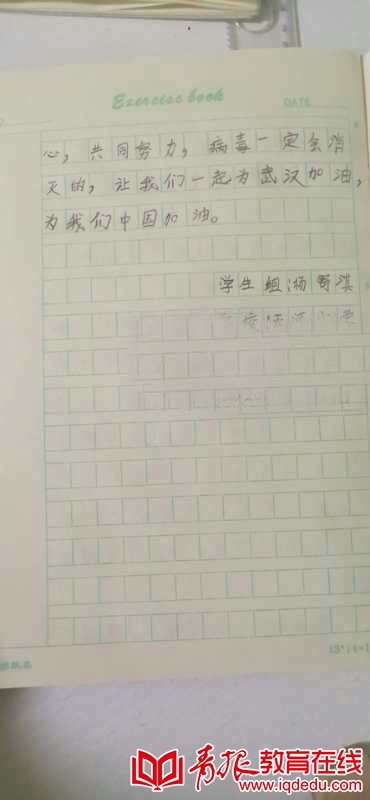 Exercise book
DATE
心，共同努力，病毒一定会消
灭的，让我们一起为武汉加油，
为我们中国加油。
学生组杨
小学
青报教育在线
www.iqdedu.com